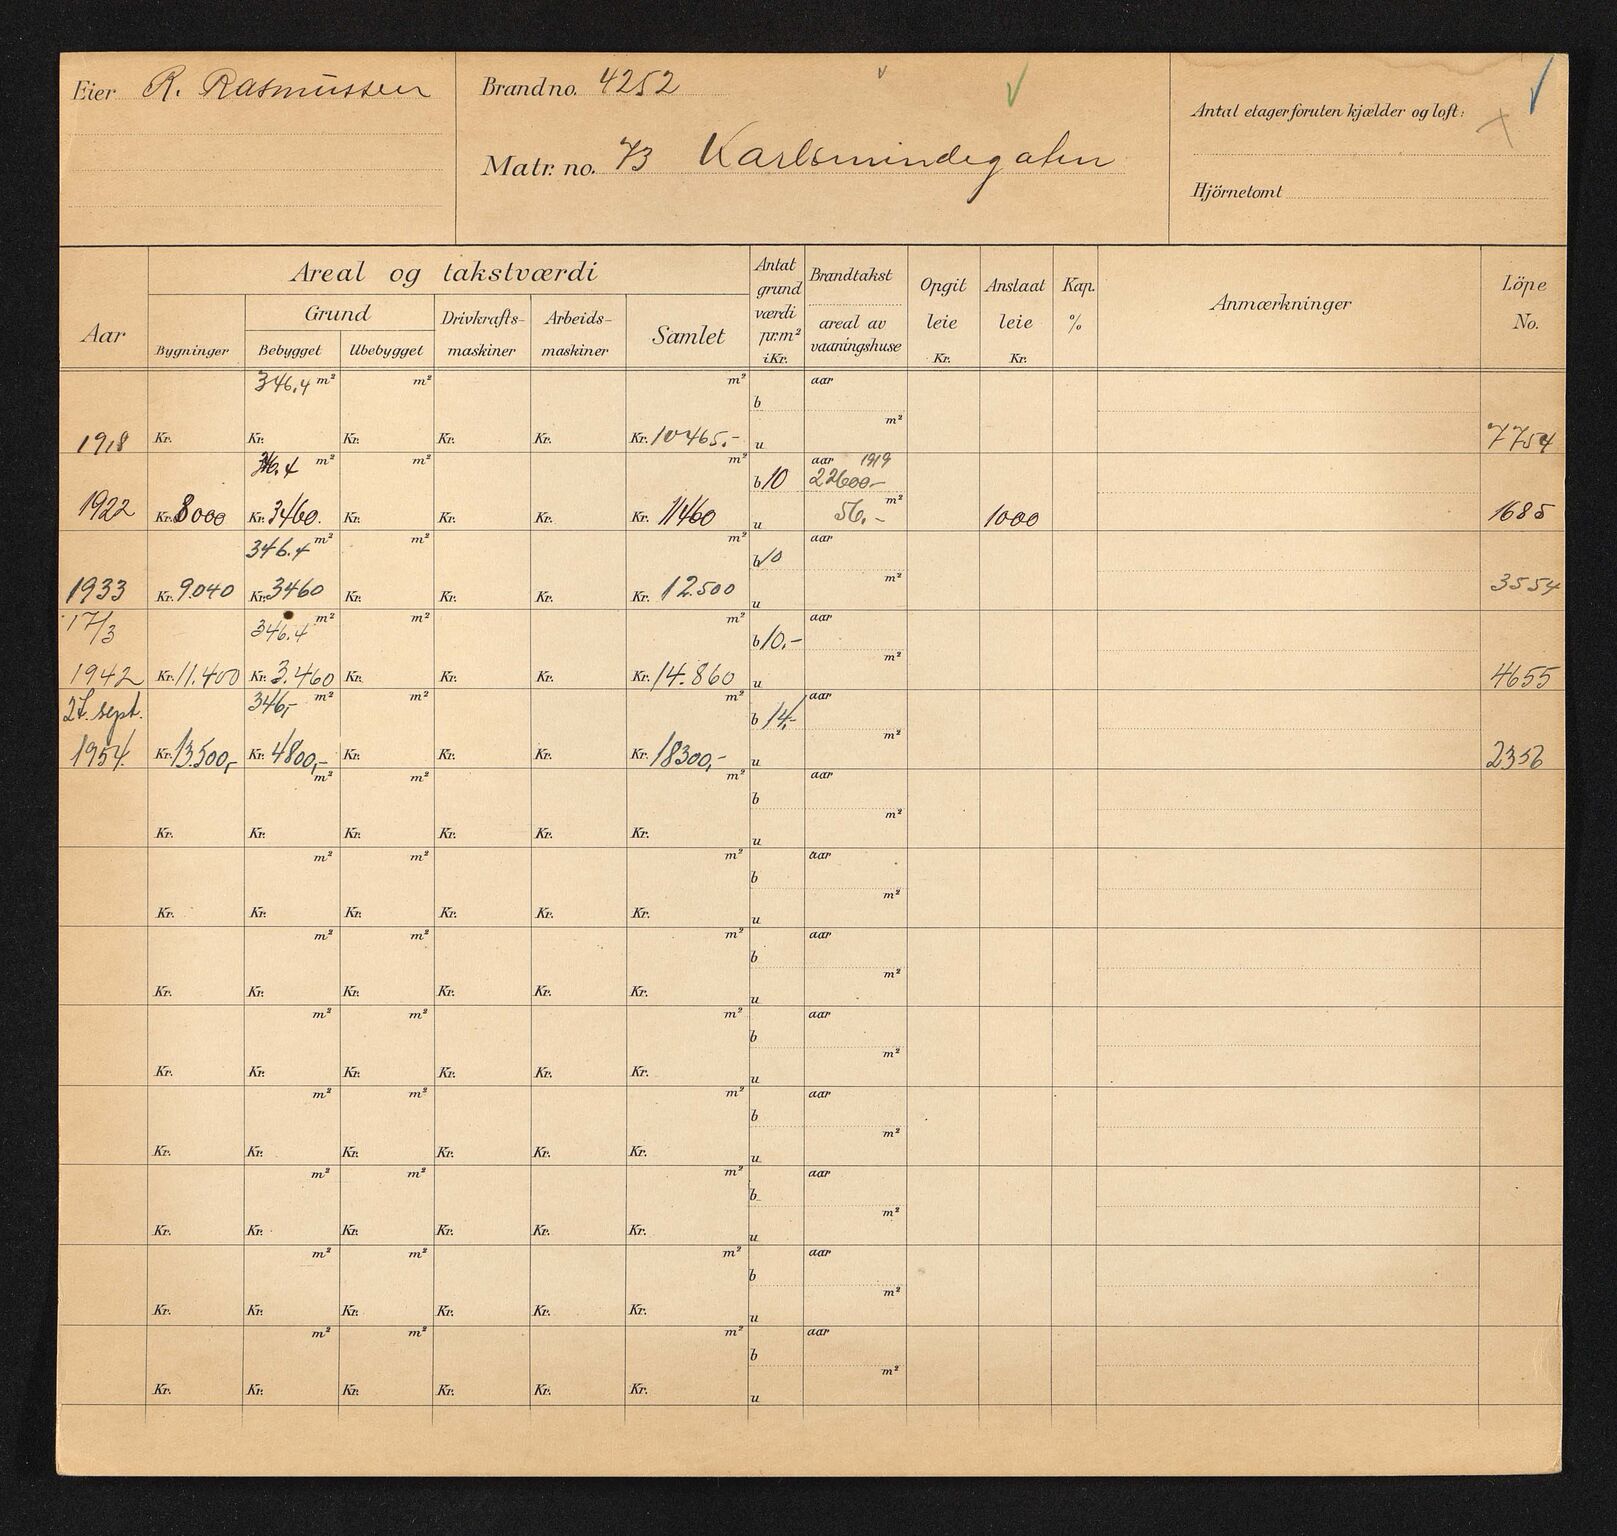 Eier R. Rasmussen
Brand no. 4252
Matr. no. 73 Karlsmindegaten
Antal etager foruten kjælder og loft:
Hjörnetomt
Aar
Areal og takstværdi
Bygninger
Grund
Bebygget
Ubebygget
Drivkrafts-
maskiner
Arbeids-
maskiner
Samlet
Antat
grund
værdi
pr.m²
i Kr.
Brandtakst
areal av
vaaningshuse
Opgit
leie
Kr.
Anslaat
leie
Kr.
Kap.
%
Anmærkninger
Löpe
No.
346.4 m² m² m² aar
b
m²
1918 Kr. Kr. Kr. Kr. Kr. Kr. 10465.- u 7754
346.4 m² m² m² aar 1919
b 10 22600.-
m²
1922 Kr. 8000 Kr. 3460. Kr. Kr. Kr. Kr. 11460 u 56.- 1000 1685
346.4 m² m² m² aar
b 10
m²
1933 Kr. 9.040 Kr. 3460 Kr. Kr. Kr. Kr. 12.500 u 3554
17/3 346.4 m² m² m² aar
b 10.-
m²
1942 Kr. 11.400 Kr. 3.460 Kr. Kr. Kr. Kr. 14.860 u 4655
27. sept. 346,- m² m² m² aar
b 14,-
m²
1954. Kr. 13.500,- Kr. 4800,- Kr. Kr. Kr. Kr. 18300,- u 2356
m² m² m² aar
b
m²
Kr. Kr. Kr. Kr. Kr. Kr. u
m² m² m² aar
b
m²
Kr. Kr. Kr. Kr. Kr. Kr. u
m² m² m² aar
b
m²
Kr. Kr. Kr. Kr. Kr. Kr. u
m² m² m² aar
b
m²
Kr. Kr. Kr. Kr. Kr. Kr. u
m² m² m² aar
b
m²
Kr. Kr. Kr. Kr. Kr. Kr. u
m² m² m² aar
b
m²
Kr. Kr. Kr. Kr. Kr. Kr. u
m² m² m² aar
b
m²
Kr. Kr. Kr. Kr. Kr. Kr. u
m² m² m² aar
b
m²
Kr. Kr. Kr. Kr. Kr. Kr. u